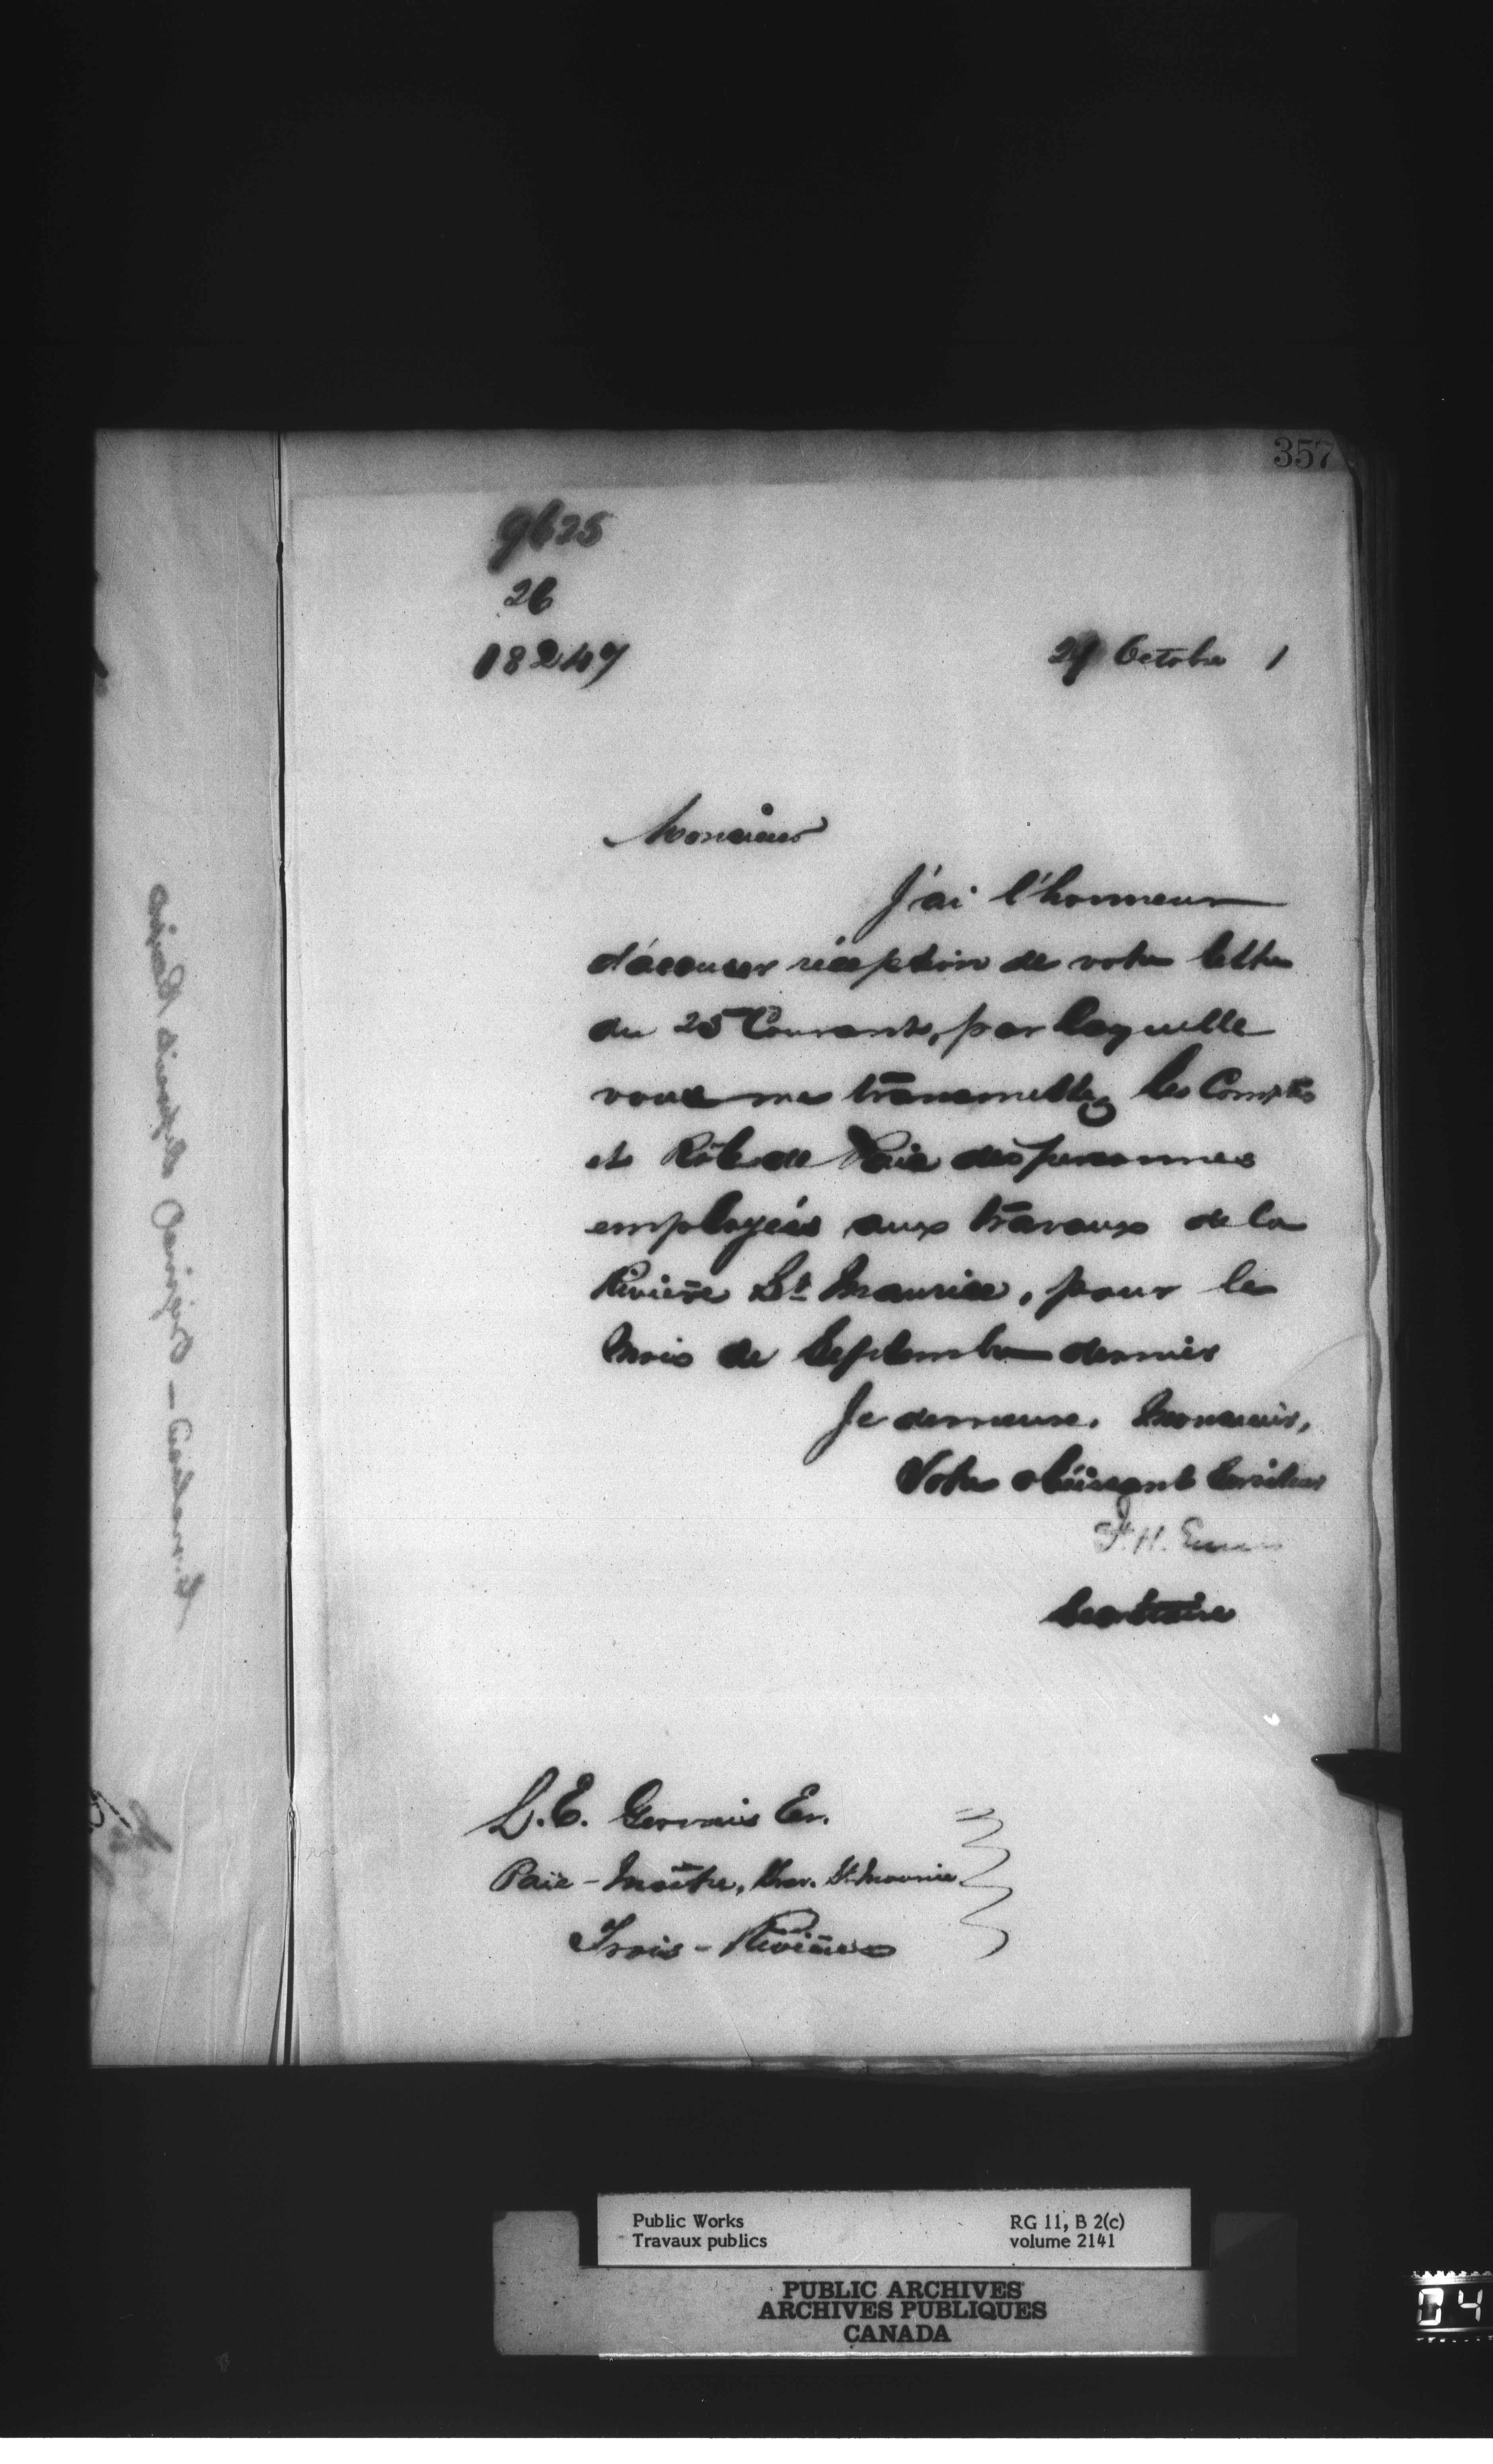 357
9625
26
18247
29 Octobre 1
Monsieur
J'ai l'honneur
d'accuser réception de votre lettre
du 25 Courant, par laquelle
vous me transmettez les Comptes
et Rôle de Paie des personnes
employées aux travaux de la
Rivière St Maurice, pour le
Mois de Septembre dernier
Je demeure, Monsieur,
Votre obéissant Serviteur
F. H. Ennis
Secrétaire
L. E. Gervais Er.
Paie-Maître, Trav. St Maurice
Trois-Rivières
Public Works
Travaux publics
RG 11, B 2(c)
volume 2141
PUBLIC ARCHIVES
ARCHIVES PUBLIQUES
CANADA
04